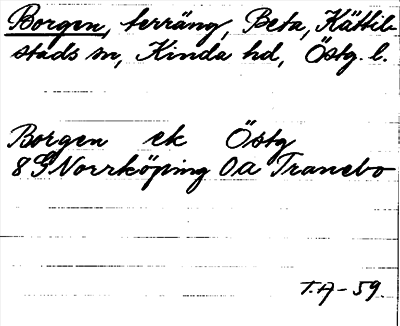 Borgen, terräng, Beta, Kättil-
stads sn, Kinda hd, Östg. l.
Borgen ek Östg
8 G Norrköping 0a Tranebo
T.A-59.